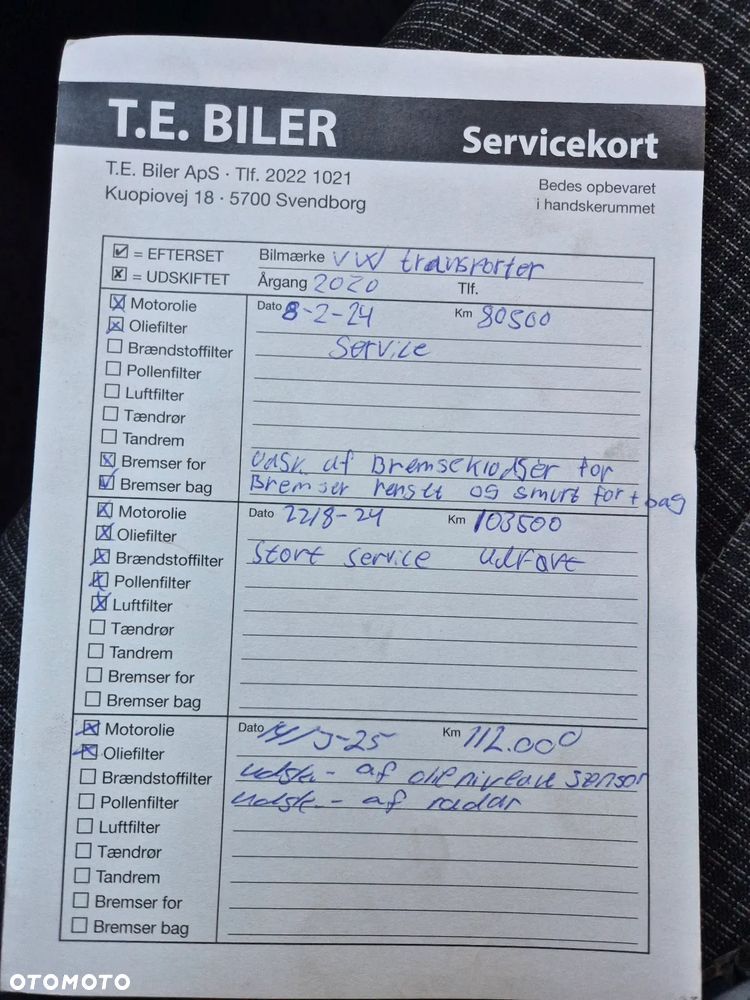 T.E. BILER
Servicekort
T.E. Biler ApS · Tlf. 2022 1021
Kuopiovej 18 · 5700 Svendborg
Bedes opbevaret
i handskerummet
☑ = EFTERSET
☒ = UDSKIFTET
Bilmærke VW transporter
Årgang 2020 Tlf.
☒ Motorolie
☒ Oliefilter
☐ Brændstoffilter
☐ Pollenfilter
☐ Luftfilter
☐ Tændrør
☐ Tandrem
☒ Bremser for
☑ Bremser bag
Dato 8-2-24 Km 80500
Service
Udsk af Bremseklodser for
Bremser renset og smurt for + bag
☒ Motorolie
☒ Oliefilter
☒ Brændstoffilter
☒ Pollenfilter
☒ Luftfilter
☐ Tændrør
☐ Tandrem
☐ Bremser for
☐ Bremser bag
Dato 22/8-24 Km 103500
Stort service udført
☒ Motorolie
☒ Oliefilter
☐ Brændstoffilter
☐ Pollenfilter
☐ Luftfilter
☐ Tændrør
☐ Tandrem
☐ Bremser for
☐ Bremser bag
Dato Km 112.000
udsk - af olieniveau sensor
udsk - af radar
OTOMOTO